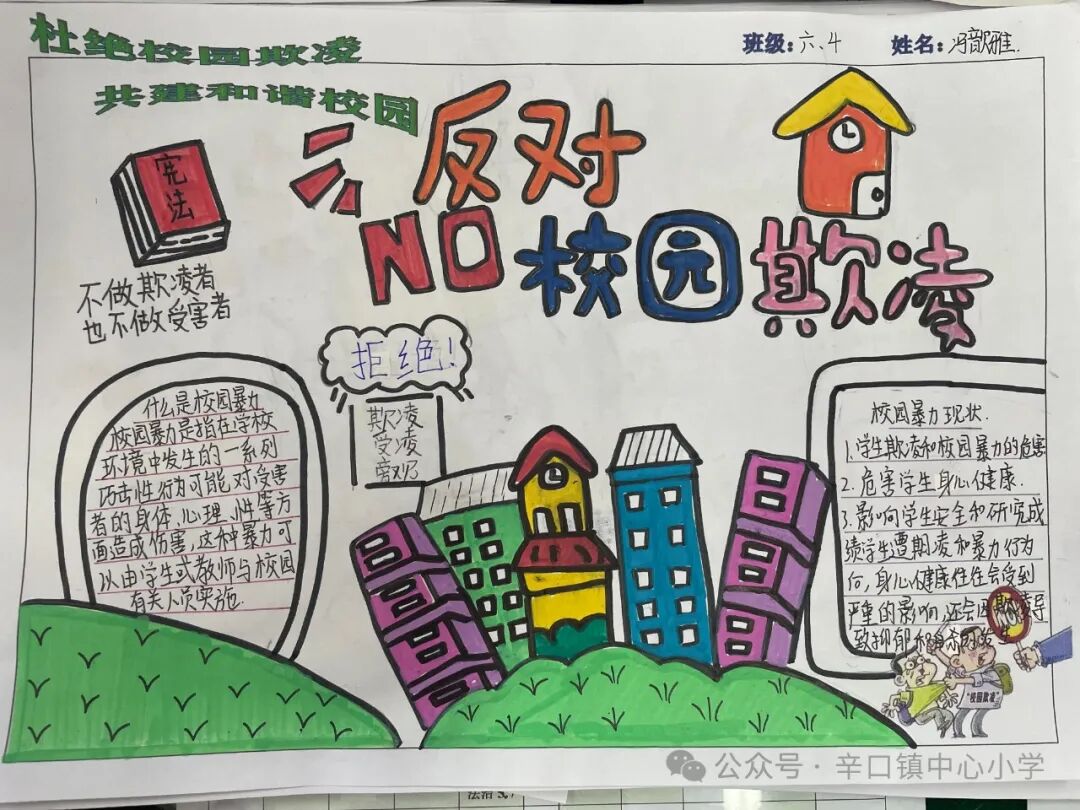 杜绝校园欺凌
共建和谐校园
班级:六、4 姓名:冯歆雅.
反对
NO 校园欺凌
宪法
不做欺凌者
也不做受害者
拒绝!
欺凌
受凌
什么是校园暴力
校园暴力是指在学校
环境中发生的一系列
攻击性行为可能,对受害
者的身体、心理、性等方
面造成伤害,这种暴力可
以由学生或教师与校园
有关人员实施.
校园暴力现状.
1.学生欺凌和校园暴力的危害
2.危害学生身心健康.
3.影响学生安全和研究成
绩学生遭期凌和暴力行为
何,身心健康往往会受到
严重的影响,还会导
致抑郁和
"校园欺凌"
公众号·辛口镇中心小学